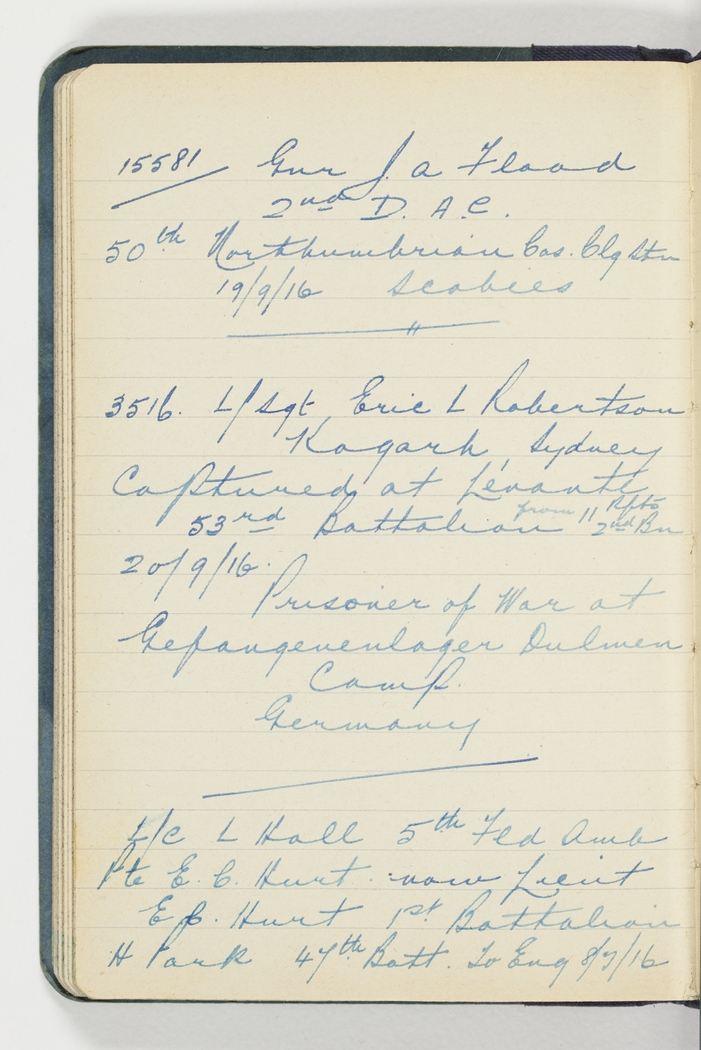 15581 Gnr J. A Flood
2nd D. A. C.
50th Northumbrian Cas. Clg Stn
19/9/16 Scabies
"
3516. L/Sgt Eric L Robertson
Kogarh, Sydney
Captured at Levante
from 11 Rfts
53rd Battalion 2nd Bn
20/9/16.
Prisoner of War at
Gefangenenlager Dulmen
Camp.
Germany
L/C L Hall 5th Fld Amb
Pte E. C. Hurt. now Lieut
E C. Hurt 1st Battalion
H Park 47th Batt. To Eng 8/7/16